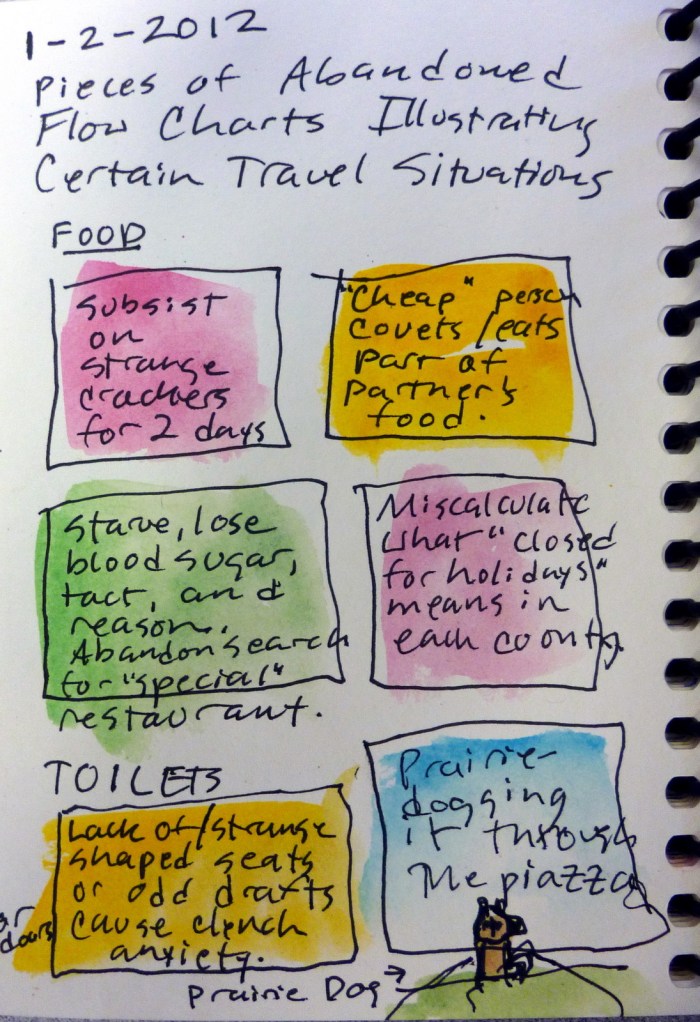 1-2-2012
Pieces of Abandoned
Flow Charts Illustrating
Certain Travel Situations
FOOD
Subsist
on
strange
crackers
for 2 days
"Cheap" person
covets/eats
part of
partner's
food.
Starve, lose
blood sugar,
tact, and
reason.
Abandon search
for "special"
restaurant.
Miscalculate
what "closed
for holidays"
means in
each country.
TOILETS
Lack of/strange
shaped seats
or odd drafts
cause clench
anxiety.
or
doors
Prairie-
dogging
it through
The piazza
Prairie Dog →